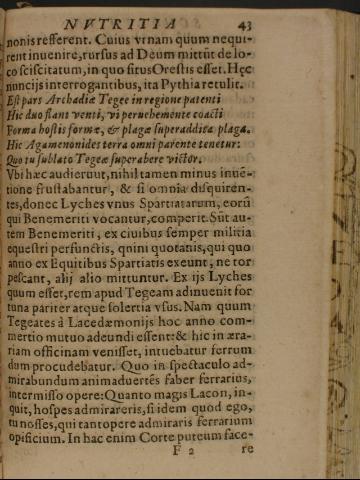 NVTRITIA 43
nonis refferent. Cuius vrnam quum nequi-
rent inuenire, rursus ad Deum mittūt de lo-
co sciscitatum, in quo situs Orestis esset. Hęc
nuncijs interrogantibus, ita Pythia retulit.
Est pars Archadiæ Tegee in regione patenti
Hic duo flant venti, vi peruehemente coacti
Forma hostis formæ, & plagæ superaddita plaga.
Hic Agamenonides terra omni parente tenetur:
Quo tu sublato Tegeæ superabere victor.
Vbi hæc audierunt, nihil tamen minus inuē-
tione frustabantur, & si omnia disquiren-
tes, donec Lyches vnus Spartiatarum, eorū
qui Benemeriti vocantur, comperit. Sūt au-
tem Benemeriti, ex ciuibus semper militia
equestri perfunctis, qnini quotānis, qui quo
anno ex Equitibus Spartiatis exeunt, ne tor
pescant, alij alio mittuntur. Ex ijs Lyches
quum esset, rem apud Tegeam adinuenit for
tuna pariter atque solertia vsus. Nam quum
Tegeates à Lacedæmonijs hoc anno com-
mertio mutuo adeundi essent: & hic in æra-
riam officinam venisset, intuebatur ferrum
dum procudebatur. Quo in spectaculo ad-
mirabundum animaduertēs faber ferrarius,
intermisso opere: Quanto magis Lacon, in-
quit, hospes admirareris, si idem quod ego,
tu nosses, qui tantopere admiraris ferrarium
opificium. In hac enim Corte puteum face-
F 2 re